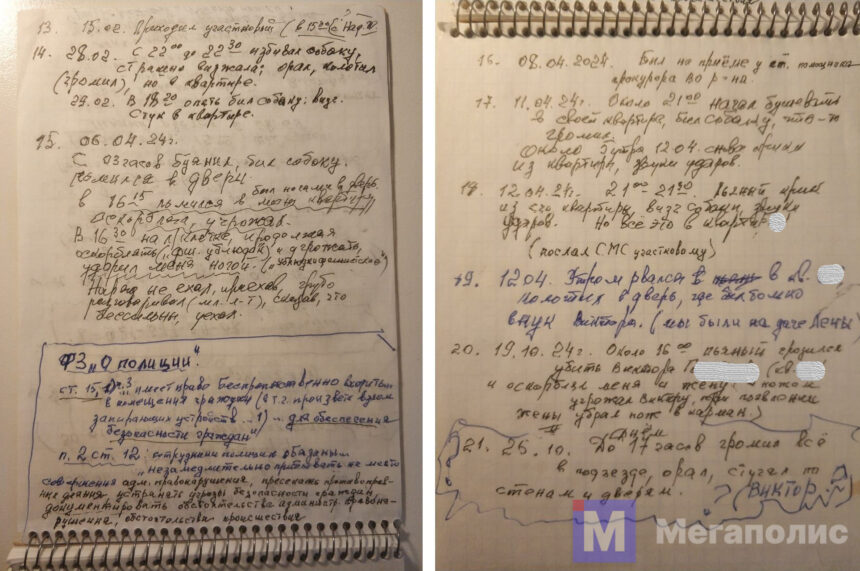 13. 15.02. Приходил участковый (в 15
14. 28.02. С 22 00 до 22 30 избивал собаку,
страшно визжала; орал, колотил
(громил), но в квартире.
29.02. В 18 20 опять бил собаку: визг.
Стук в квартире.
15. 06.04.24г.
С 03 часов буянил, бил собаку.
ломился в двери
бил ногами в дверь
в 16 15 ломился в мою квартиру,
оскорблял, угрожал.
В 16 30 на л. клетке, продолжая
оскорблять („ ублюдок") и угрожать,
ударил меня ногой.
Наряд не ехал, приехав, грубо
разговаривал (мл. л-т), сказав, что
бессильны, уехал.
ФЗ „О полиции".
ст. 15, п. 3 имеет право беспрепятственно входить
в помещения граждан (в т.ч. произвести взлом
запирающих устройств .. 1) — для обеспечения
безопасности граждан"
п. 2 ст. 12: сотрудники полиции обязаны...
„незамедлительно прибывать на место
совершения адм. правонарушения, пресекать противоправ-
ные деяния, устранять угрозы безопасности граждан,
документировать обстоятельства админист. правона-
рушения, обстоятельства происшествия
16. 08.04.2024. Был на приёме у ст. помощника
прокурора ВО р-на.
17. 11.04.24г. Около 21 00 начал бушевать
в своей квартире, бил собаку, что-то
громил.
Около 5 утра 12 04 снова крики
из квартиры, звуки ударов.
18. 12.04.24г. 21 00 - 21 30. Пьяный крик
из его квартиры, визг собаки, звуки
ударов. Но всё это в квартире
(послал СМС участковому)
19. 12 04. Утром рвался в в кв.
колотил в дверь, где был только
внук Виктора. (мы были на даче Лены)
20. 19.10.24г. Около 16 00 пьяный грозился
убить Виктора П (кв.
и оскорблял меня и жену. (ножом
угрожал Виктору, при появлении
жены убрал нож в карман.)
21. 25.10. Днём До 17 часов громил всё
в подъезде, орал, стучал по
стенам и дверям. ? (Виктор - ?)
М Мегаполис